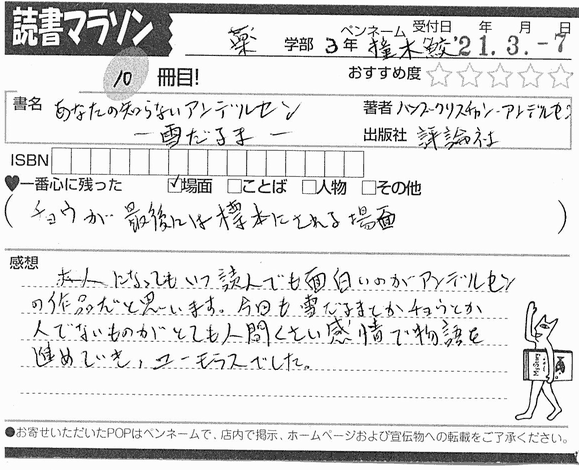 読書マラソン
薬 学部 3年 ペンネーム 撞木鮫 受付日 年 月 日 '21.3.-7
10 冊目! おすすめ度 ☆☆☆☆☆
書名 あなたの知らないアンデルセン 著者 ハンス・クリスチャン・アンデルセン
―雪だるま― 出版社 評論社
ISBN
♥一番心に残った ☑場面 □ことば □人物 □その他
(チョウが最後には標本にされる場面)
感想
大人になってもいつ読んでも面白いのがアンデルセン
の作品だと思います。今回も雪だるまとかチョウとか
人でないものがとても人間くさい感情で物語を
進めていき、ユーモラスでした。
●お寄せいただいたPOPはペンネームで、店内で掲示、ホームページおよび宣伝物への転載をご了承ください。